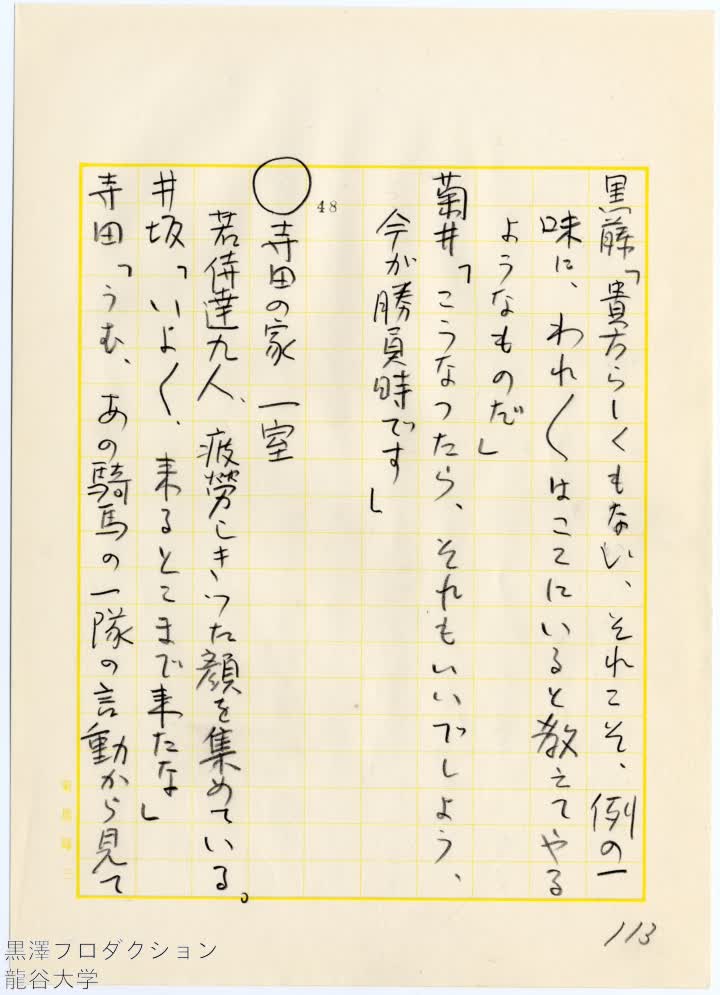 黒藤「貴方らしくもない、それこそ、例の一
味に、われ〱はこゝにいると教えてやる
ようなものだ」
菊井「こうなったら、それもいいでしょう、
今が勝負時です」
48
◯寺田の家 一室
若侍達九人、疲労しきった顔を集めている。
井坂「いよ〱、来るとこまで来たな」
寺田「うむ、あの騎馬の一隊の言動から見て
113
黒澤プロダクション
龍谷大学